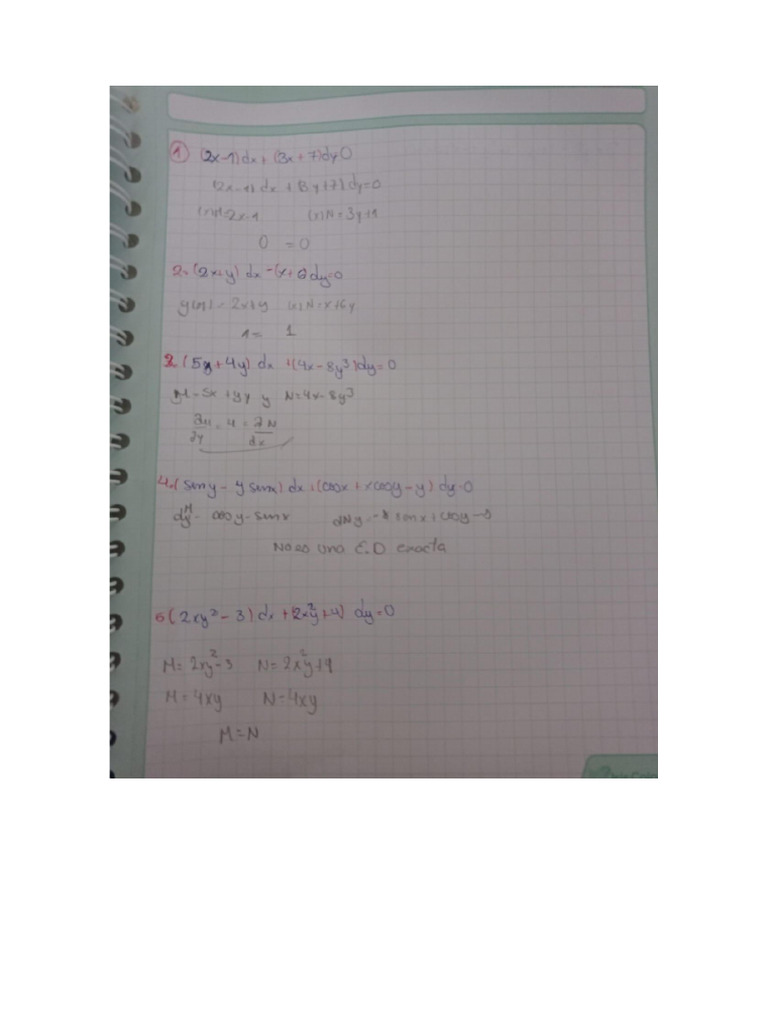 1 (2x-1)dx + (3x+7)dy 0
(2x-1)dx + (3y+7)dy=0
=2x-1 N=3y+1
0 =0
2. (2x+y) dx -(x+6)dy=0
= 2x+y N=x+6y
1= 1
2 (5y+4y) dx +(4x-8y³)dy=0
M=5x+yy y N=4x-8y³
∂M/∂y = 4 = ∂N/dx
4.( seny - y senx) dx +(cosx + xcosy-y) dy=0
cosy-senx senx + cosy -y
No es una E.D exacta
5 (2xy²-3) dx +(2x²y+4) dy=0
M= 2xy²-3 N= 2x²y+4
M=4xy N=4xy
M=N